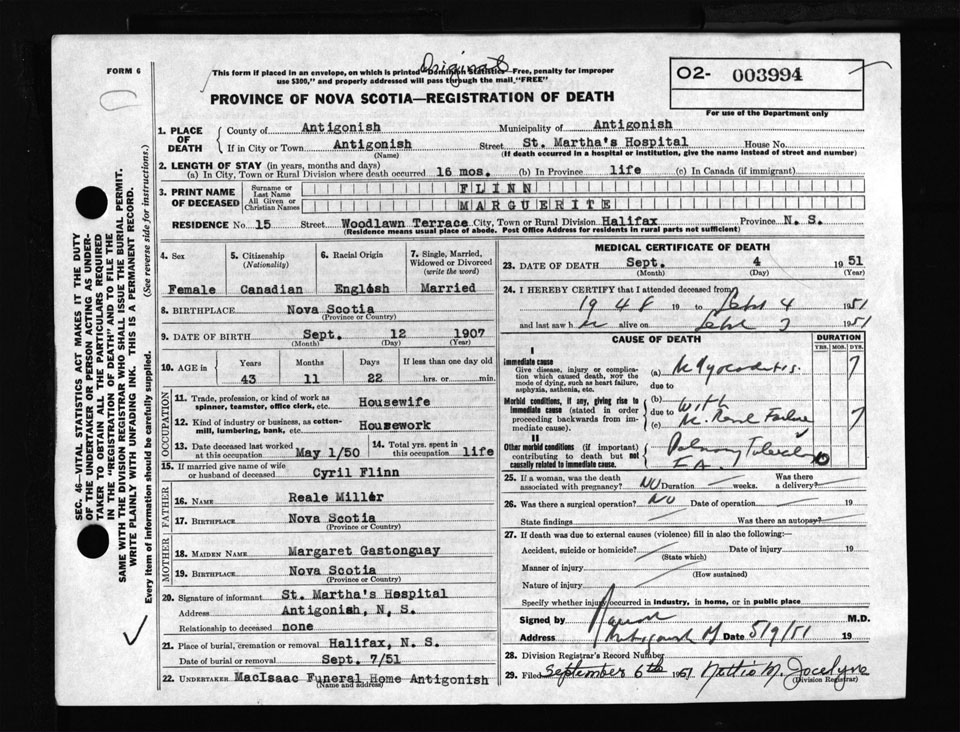 FORM 6
Original
This form if placed in an envelope, on which is printed "Dominion Statistics—Free, penalty for improper
use $300," and properly addressed will pass through the mail "FREE"
O2- 003994
For use of the Department only
PROVINCE OF NOVA SCOTIA—REGISTRATION OF DEATH
SEC. 46—VITAL STATISTICS ACT MAKES IT THE DUTY
OF THE UNDERTAKER OR PERSON ACTING AS UNDER-
TAKER TO OBTAIN ALL THE PARTICULARS REQUIRED
IN THE "REGISTRATION OF DEATH" AND TO FILE THE
SAME WITH THE DIVISION REGISTRAR WHO SHALL ISSUE THE BURIAL PERMIT.
WRITE PLAINLY WITH UNFADING INK. THIS IS A PERMANENT RECORD.
Every item of information should be carefully supplied. (See reverse side for instructions.)
1. PLACE OF DEATH
County of Antigonish Municipality of Antigonish
If in City or Town Antigonish Street St. Martha's Hospital House No.
(Name) (If death occurred in a hospital or institution, give the name instead of street and number)
2. LENGTH OF STAY (in years, months and days)
(a) In City, Town or Rural Division where death occurred 16 mos. (b) In Province life (c) In Canada (if immigrant)
3. PRINT NAME OF DECEASED
Surname or Last Name FLINN
All Given or Christian Names MARGUERITE
RESIDENCE No. 15 Street Woodlawn Terrace City, Town or Rural Division Halifax Province N. S.
(Residence means usual place of abode. Post Office Address for residents in rural parts not sufficient)
4. Sex
Female
5. Citizenship
(Nationality)
Canadian
6. Racial Origin
English
7. Single, Married,
Widowed or Divorced
(write the word)
Married
8. BIRTHPLACE Nova Scotia
(Province or Country)
9. DATE OF BIRTH Sept. 12 1907
(Month) (Day) (Year)
10. AGE in
Years Months Days If less than one day old
43 11 22 hrs. or min.
OCCUPATION
11. Trade, profession, or kind of work as
spinner, teamster, office clerk, etc. Housewife
12. Kind of industry or business, as cotten-
mill, lumbering, bank, etc. Housework
13. Date deceased last worked
at this occupation May 1/50
14. Total yrs. spent in
this occupation life
15. If married give name of wife
or husband of deceased Cyril Flinn
FATHER
16. NAME Reale Miller
17. BIRTHPLACE Nova Scotia
(Province or Country)
MOTHER
18. MAIDEN NAME Margaret Gastonguay
19. BIRTHPLACE Nova Scotia
(Province or Country)
20. Signature of informant St. Martha's Hospital
Address Antigonish, N. S.
Relationship to deceased none
21. Place of burial, cremation or removal Halifax, N. S.
Date of burial or removal Sept. 7/51
22. UNDERTAKER MacIsaac Funeral Home Antigonish
(Name and address)
MEDICAL CERTIFICATE OF DEATH
23. DATE OF DEATH Sept. 4 1951
(Month) (Day) (Year)
24. I HEREBY CERTIFY that I attended deceased from
1948 19 to Sept 4 1951
and last saw h er alive on Sept 3 1951
CAUSE OF DEATH
DURATION
YRS. MOS. DYS.
I
Immediate cause
Give disease, injury or complica-
tion which caused death, NOT the
mode of dying, such as heart failure,
asphyxia, asthenia, etc.
(a) Myocarditis. 7
due to
Morbid conditions, if any, giving rise to
immediate cause (stated in order
proceeding backwards from im-
mediate cause).
(b) with
due to
(c) Renal Failure 7
II
Other morbid conditions (if important)
contributing to death but not
causally related to immediate cause.
Pulmonary
F.A.
25. If a woman, was the death
associated with pregnancy? NO Duration weeks. Was there
a delivery?
26. Was there a surgical operation? NO Date of operation 19
State findings Was there an autopsy?
27. If death was due to external causes (violence) fill in also the following:—
Accident, suicide or homicide? Date of injury 19
(State which)
Manner of injury
(How sustained)
Nature of injury
Specify whether injury occurred in industry, in home, or in public place
Signed by M.D.
Address Antigonish Date 5/9/51 19
28. Division Registrar's Record Number
29. Filed September 6th 1951 Nettie M. Jocelyne
(Division Registrar)